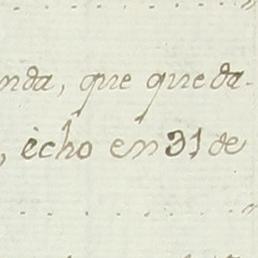 nda, que queda-
, ècho en 31 de